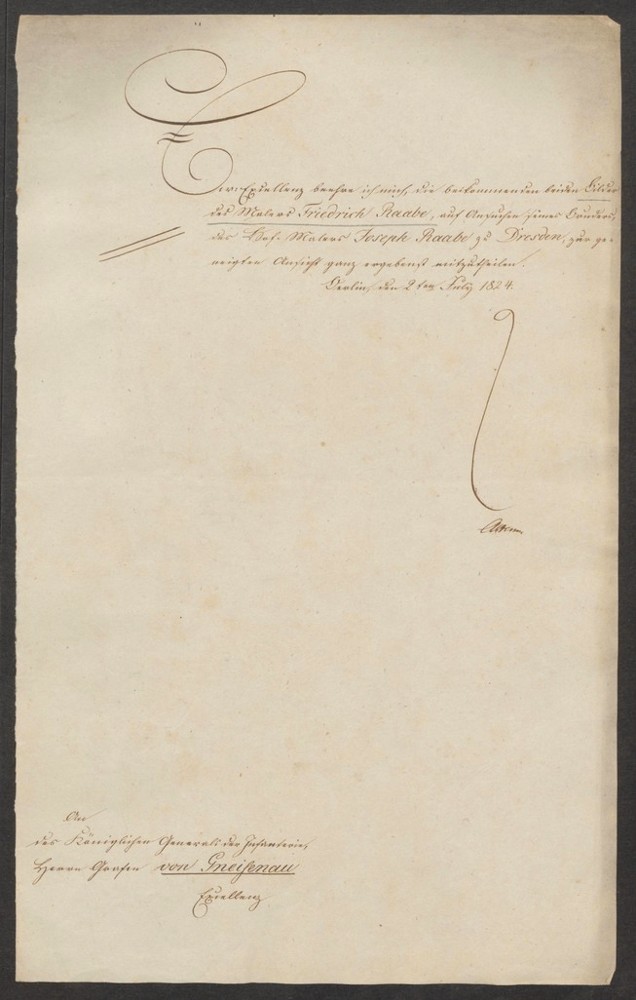 Ew. Excellenz beehre ich mich, die beikommenden beiden Bilder
des Malers Friedrich Raabe, auf Ansuchen seines Bruders,
des Hof-Malers Joseph Raabe zu Dresden, zur ge-
neigten Ansicht ganz ergebenst mitzutheilen.
Berlin, den 2ten July 1824.
An
des Königlichen Generals der Infanterie,
Herrn Grafen von Gneisenau
Excellenz